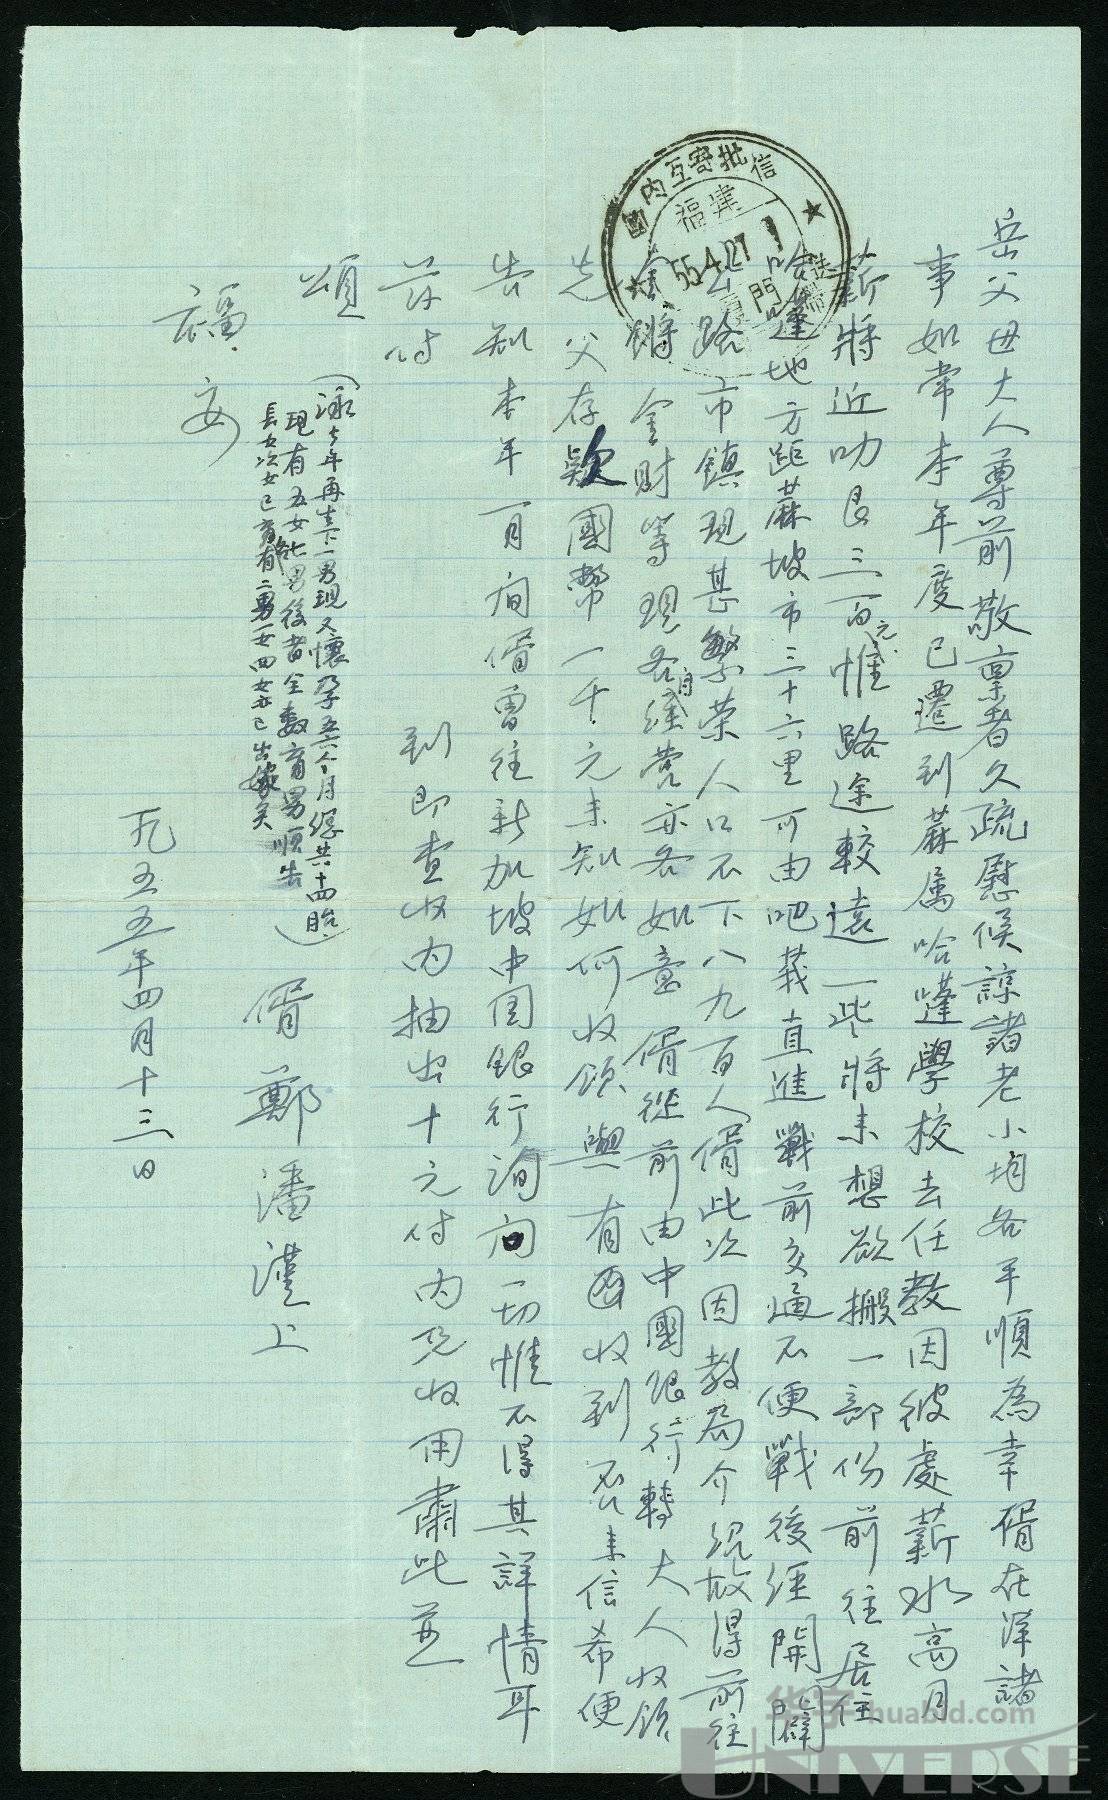 岳父母大人尊前敬稟者久疏慰候諒諸老小均各平順為幸僑在洋諸
事如常本年度已遷到蔴属哈蓬學校去任教因彼處薪水高月
薪將近叻艮三百元惟路途較遠一些將來想欲搬一部份前往居住
哈蓬地方距蔴坡市三十六里可由吧莪直進戰前交通不便戰後經開闢
公路市鎮現甚繁荣人口不下八九百人僑此次因教局介紹故得前往
金鏘金財等現各自经营亦各如意僑從前由中國银行轉大人收領
先父存欵國幣一千元未知如何收领與有收到否来信希便
告知本年一月间僑曾往新加坡中国銀行询问一切惟不得其詳情耳
茲付到即查收内抽出十元付内兄收用肅此並
頌
福安
(泳去年再生下一男現又懷孕五六个月總共十四胎
現有五女七男後者全数育男順告
長女次女已育有二男一女四女亦已出嫁矣)
僑鄭潘漢上
一九五五年四月十三日
國内互寄批信
福建
55.4.27
廈門
华宇huabid.com
UNIVERSE